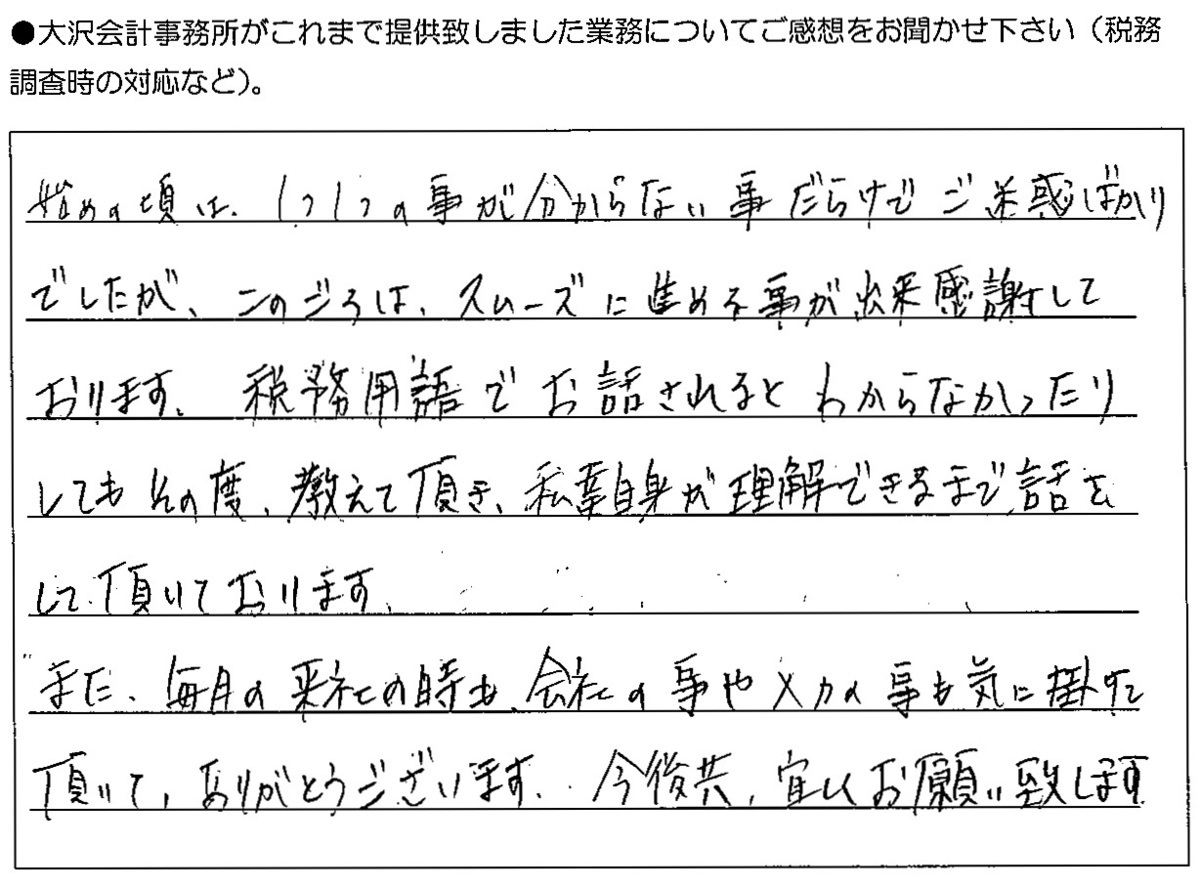 ●大沢会計事務所がこれまで提供致しました業務についてご感想をお聞かせ下さい（税務
調査時の対応など）。
始めの頃は、1つ1つの事が分からない事だらけでご迷惑ばかり
でしたが、このごろは、スムーズに進める事が出来感謝して
おります。税務用語でお話されるとわからなかったり
してもその度、教えて頂き、私自身が理解できるまで話を
して頂いております。
また、毎月の来社の時も、会社の事や人の事も気に掛けて
頂いて、ありがとうございます。今後共、宜しくお願い致します